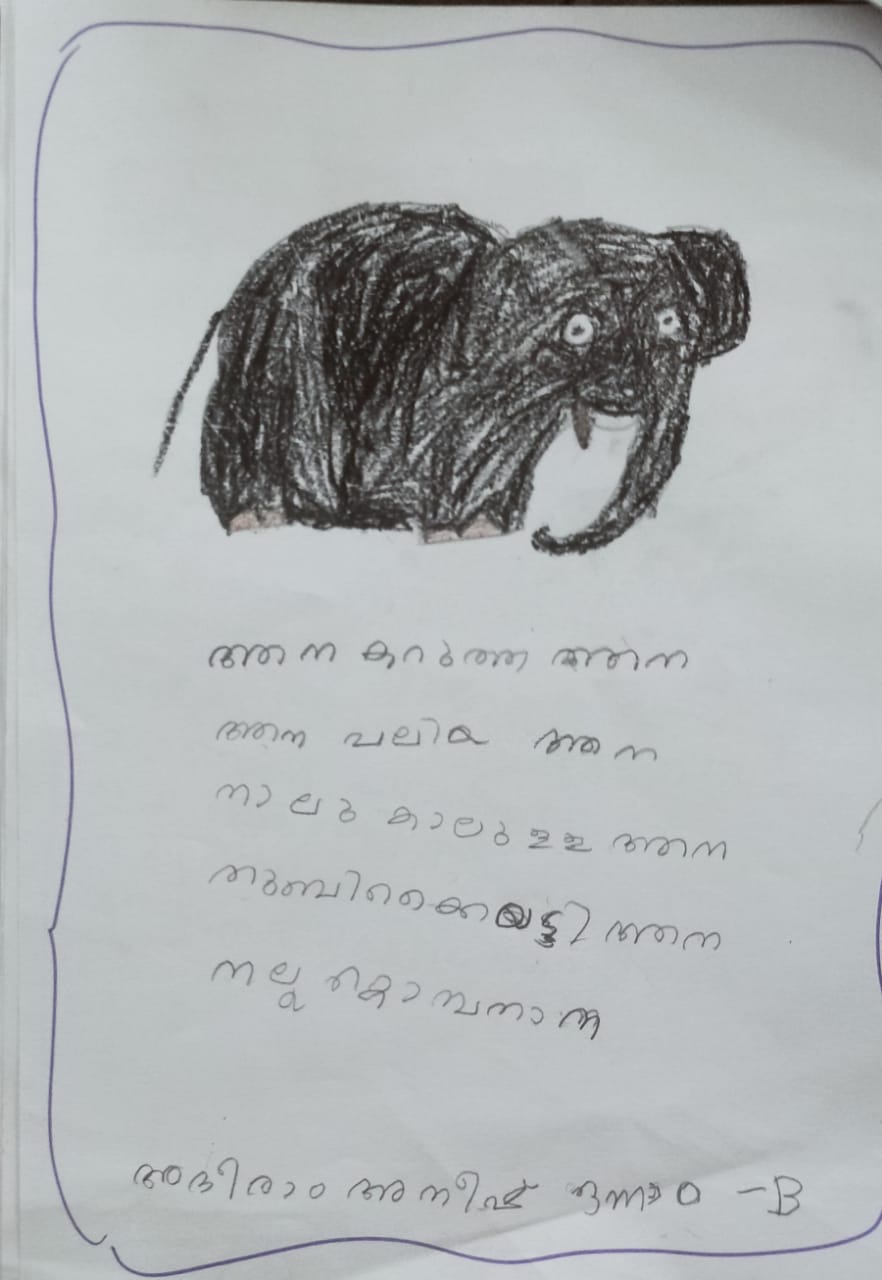 ആന കറുത്ത ആന
ആന വലിയ ആന
നാലു കാലുള്ള ആന
തുമ്പിക്കൈ ആന
നല്ല കൊമ്പനാന
അഭിരാം അനീഷ് ഒന്നാം -B